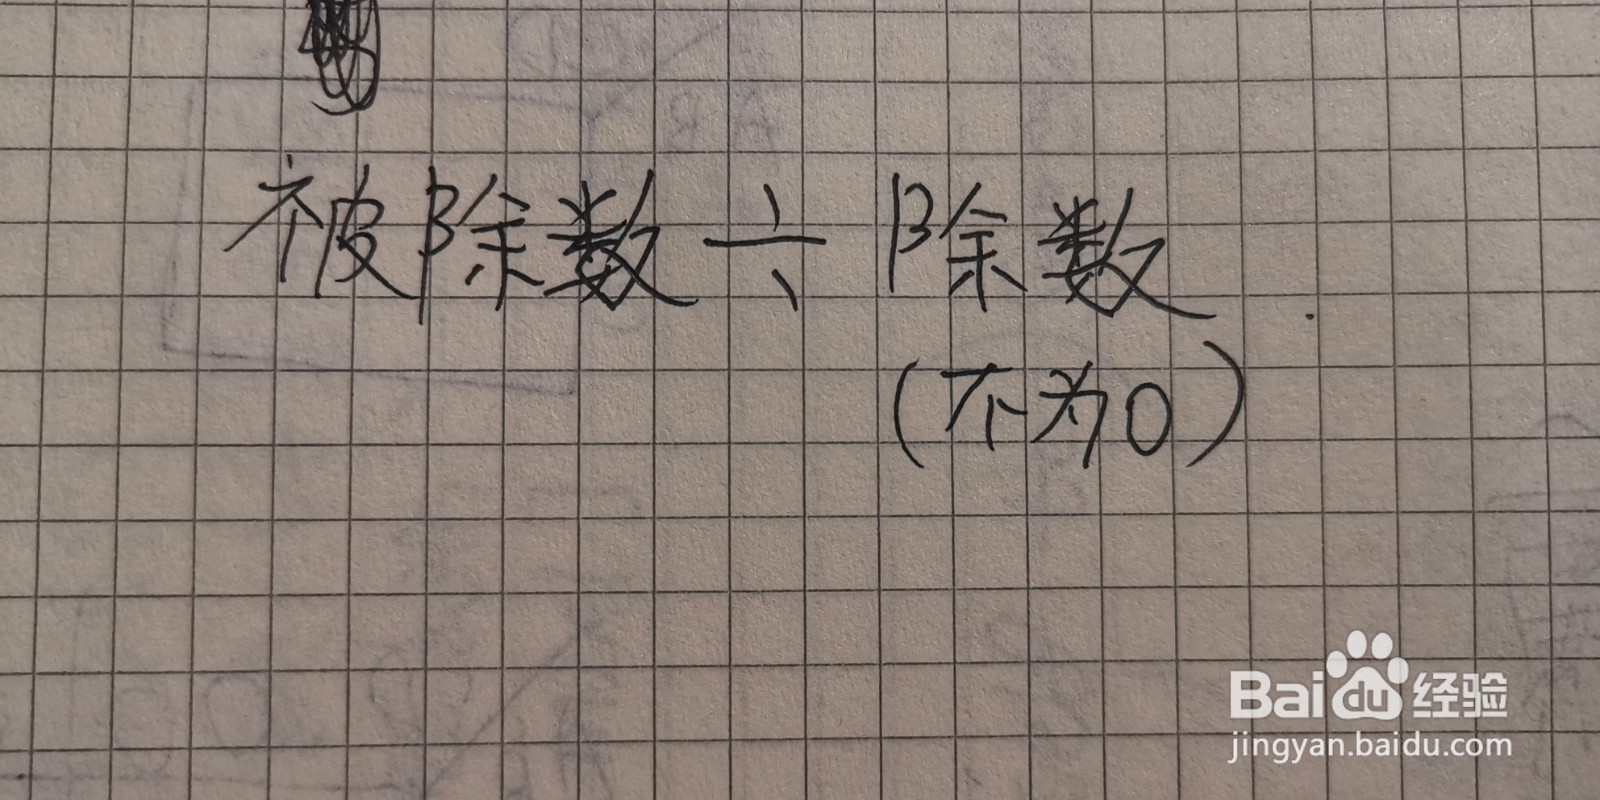 被除数÷除数
(不为0)
Baidu经验
jingyan.baidu.com